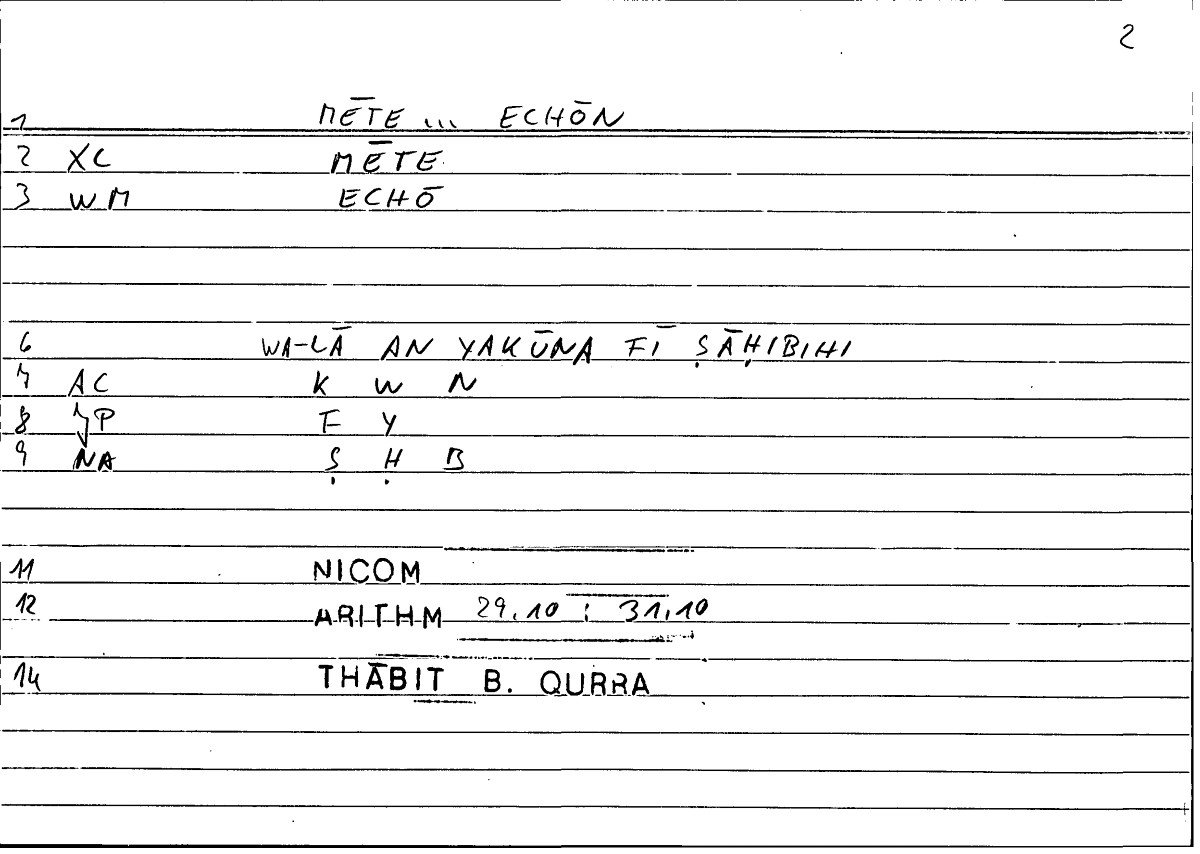 2
1 MĒTE ... ECHŌN
2 XC MĒTE
3 WM ECHŌ
6 WA-LĀ AN YAKŪNA FĪ ṢĀḤIBIHI
7 AC K W N
8 P F Y
9 NA Ṣ Ḥ B
11 NICOM
12 ARITHM 29.10 ; 31.10
14 THĀBIT B. QURRA